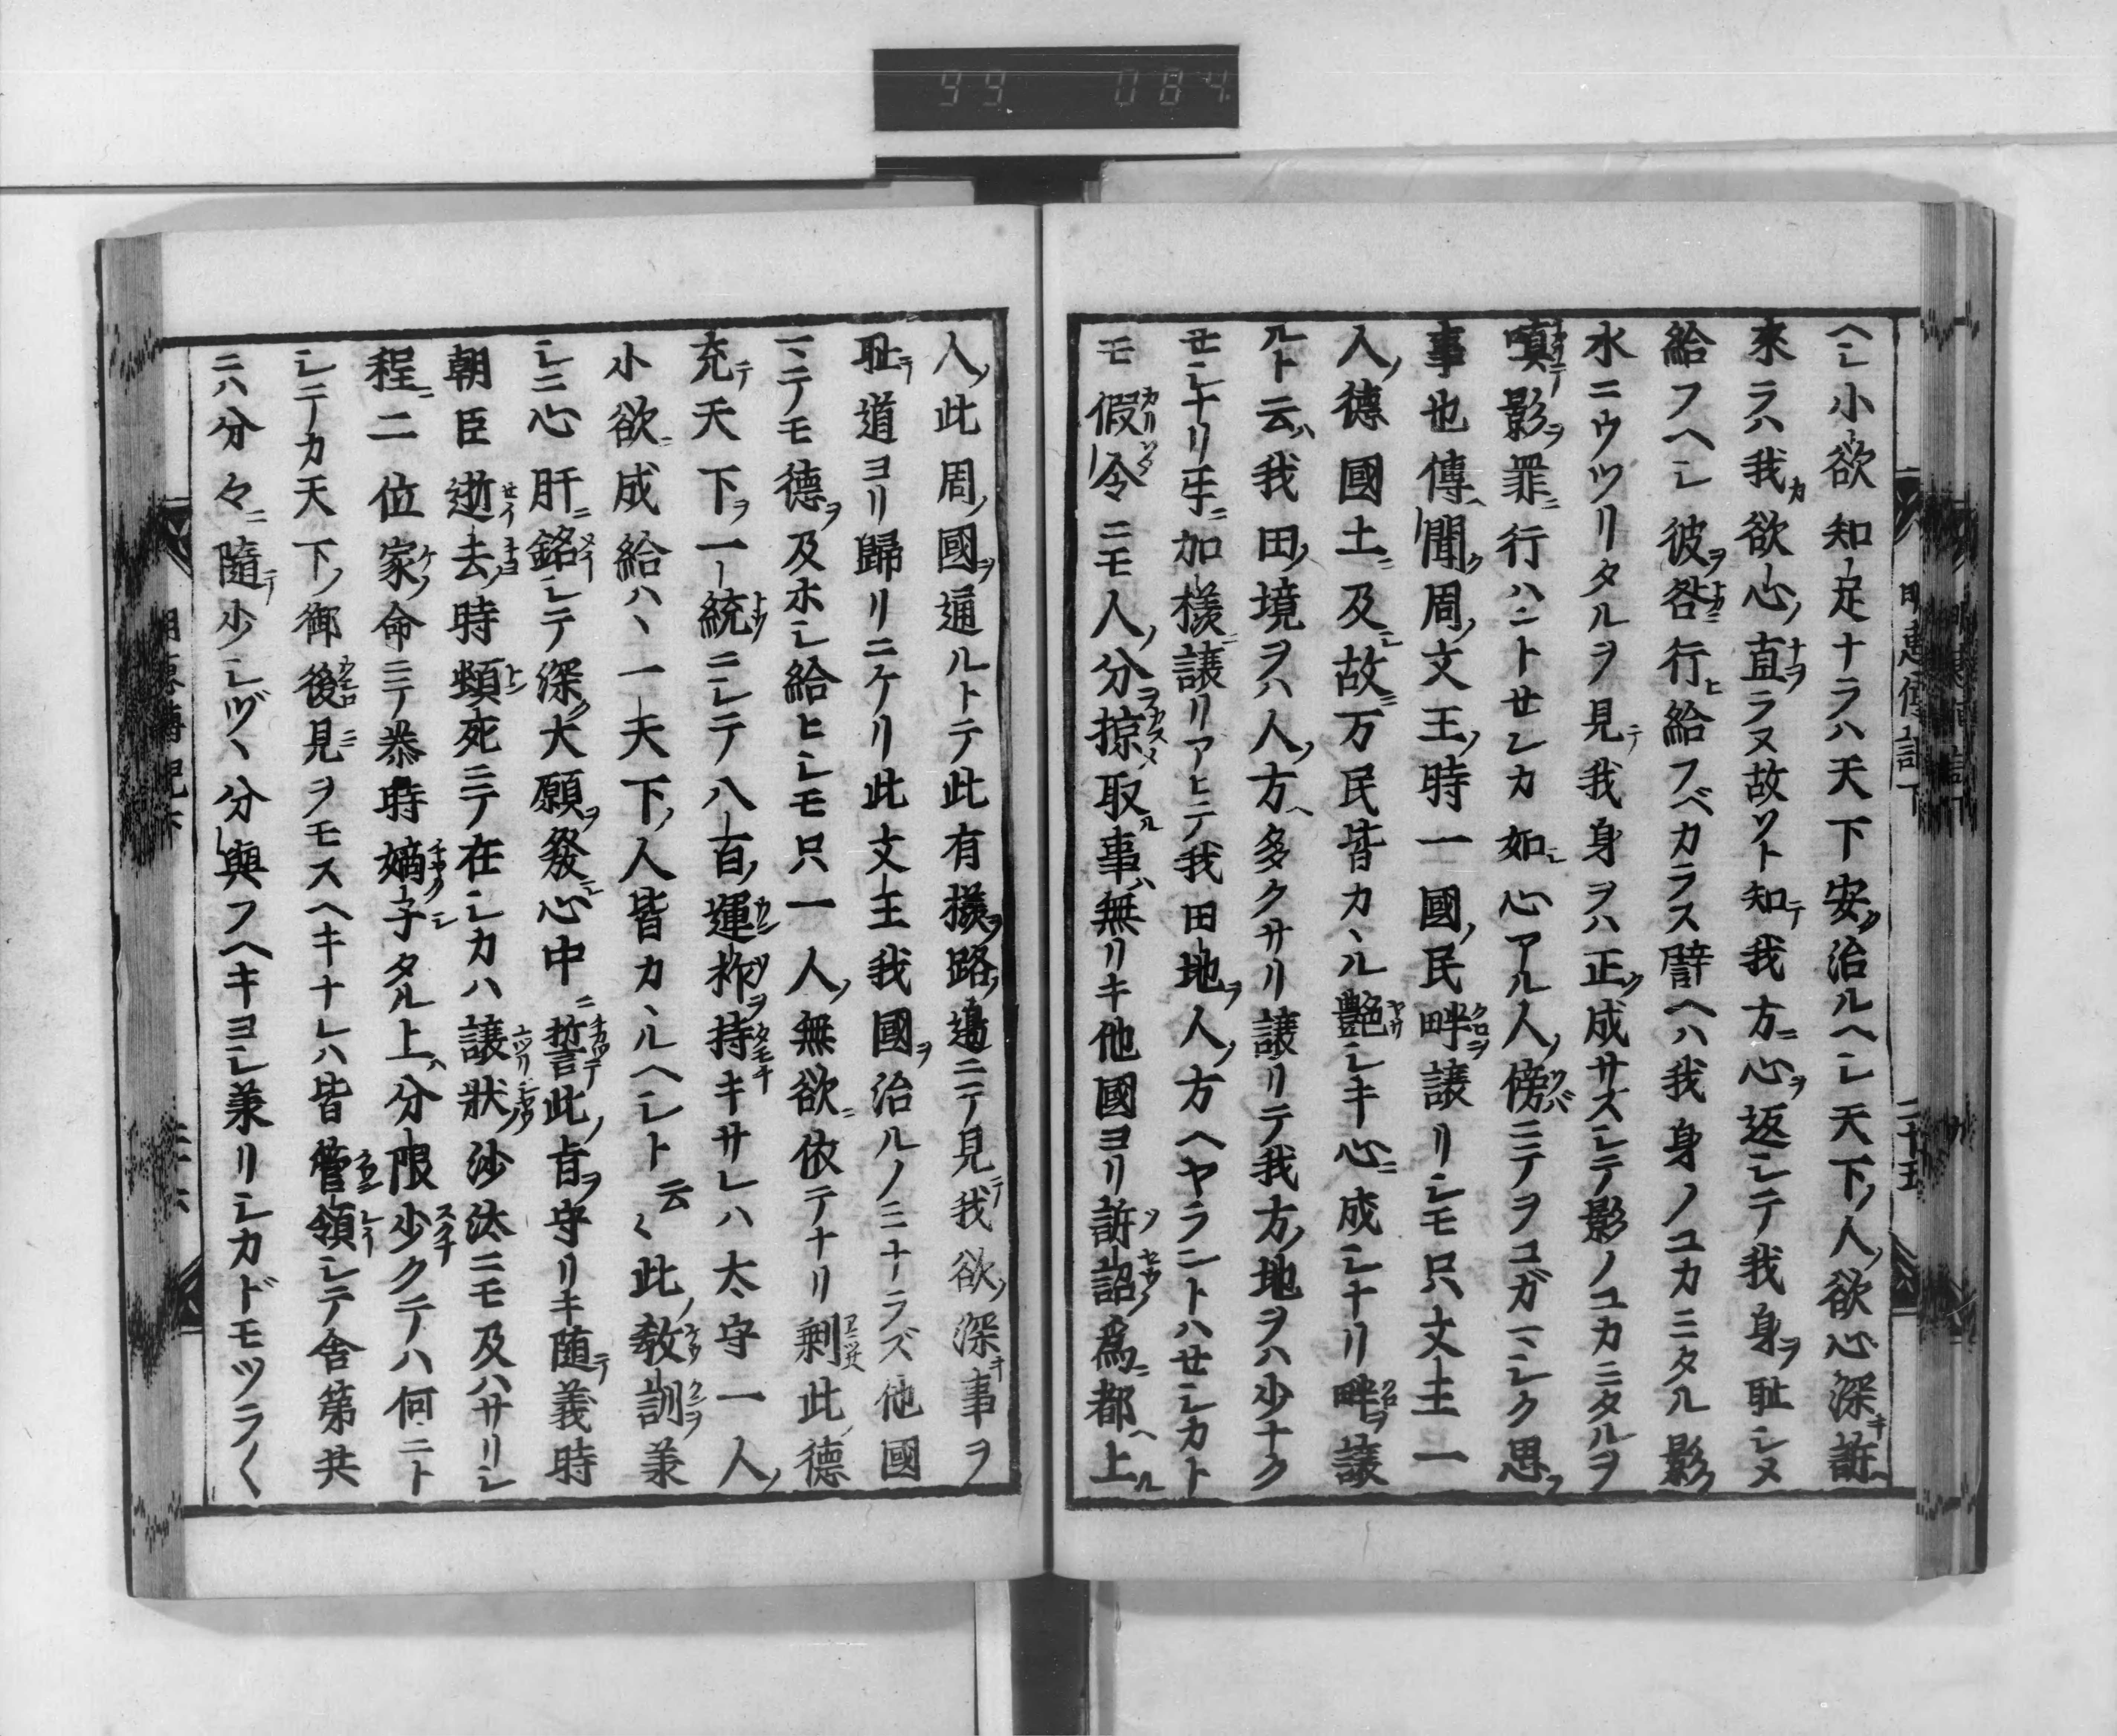 ヘシ小欲知足ナラハ天下安ク治ルヘシ天下ノ人ノ欲心深キ訴ヘ
來ラハ我カ欲心ノ直ラヌ故ソト知テ我方ニ心ヲ返シテ我身ヲ耻シヌ
給フヘシ彼ヲ咎ニ行ヒ給フベカラス譬ヘハ我身ノユカミタル影ノ
水ニウツリタルヲ見テ我身ヲハ正ク成サスシテ影ノユカミタルヲ
嗔テ影ヲ罪ニ行ハントセンカ如シ心アル人ノ傍ニテヲコガマシク思フ
事也傳ヘ聞ク周ノ文王ノ時一國ノ民畔ヲ譲リシモ只文王一
人ノ德國土ニ及シ故ニ万民皆カヽル艶シキ心ニ成シナリ畔ヲ譲
ルト云ハ我田ノ境ヲハ人ノ方ヘ多クサリ譲リテ我方ノ地ヲハ少ナク
セシナリ互ニ加樣ニ譲リアヒテ我田地ヲ人ノ方ヘヤラントハセシカト
モ假令ニモ人ノ分ヲ掠取ル事ハ無リキ他國ヨリ訴詔ノ爲ニ都ヘ上ル
人ノ此周ノ國ヲ通ルトテ此有樣ヲ路ノ邊ニテ見テ我欲ノ深キ事ヲ
耻テ道ヨリ歸リニケリ此文王我國ヲ治ルノミナラズ他國
マテモ德ヲ及ホシ給ヒシモ只一人ノ無欲ニ依テナリ剰此ノ德
充テ天下ヲ一統ニシテ八百ノ運祚ヲ持キサレハ太守一人ノ
小欲ニ成給ハヽ一天下ノ人皆カヽルヘシト云〱此ノ教訓ヲ兼
シニ心肝ニ銘シテ深ク大願ヲ發シ心中ニ誓テ此ノ旨ヲ守リキ随テ義時
朝臣逝去ノ時頓死ニテ在シカハ譲狀ノ沙汰ニモ及ハサリシ
程ニ二位家ノ命ニテ泰時嫡子タル上ハ分限少クテハ何ニト
シテカ天下ノ御後見ヲモスヘキナレハ皆管領シテ舎弟共
ニハ分々ニ隨テ少シヅヽ分與フヘキヨシ兼リシカドモツラ〱
明惠傳記下
二十五